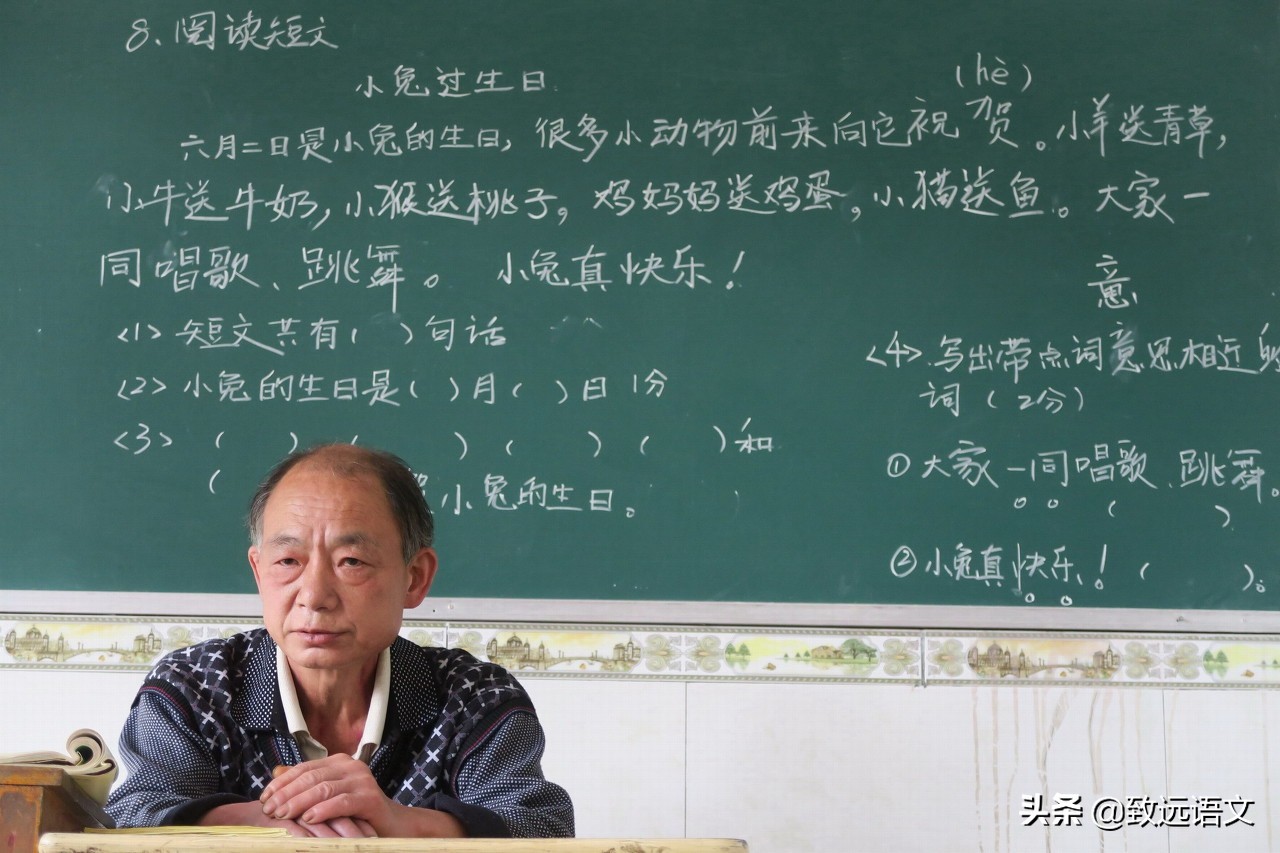 8、阅读短文
小兔过生日
(hè)
六月二日是小兔的生日,很多小动物前来向它祝贺。小羊送青草,
小牛送牛奶,小猴送桃子,鸡妈妈送鸡蛋,小猫送鱼。大家一
同唱歌、跳舞。小兔真快乐!
<1>短文共有( )句话
<2>小兔的生日是( )月( )日 1分
<3>( )( )( )( )和
( 小兔的生日。
意
<4>写出带点词意思相近的
词(2分)
①大家一同唱歌、跳舞。
( )
②小兔真快乐!( )。
头条 @致远语文